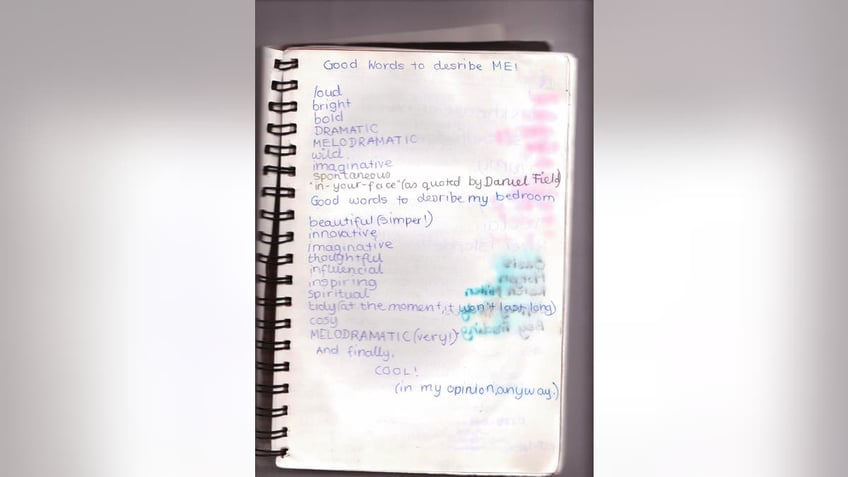 Good Words to desribe ME!
loud
bright
bold
DRAMATIC
MELODRAMATIC
wild.
imaginative
spontaneous
"in-your-face" (as quoted by Daniel Field)
Good words to desribe my bedroom
beautiful (simper!)
innovative
Imaginative
thoughtful
influencial
inspiring
spiritual
tidy (at the moment, it won't last long)
cosy
MELODRAMATIC (very!)
And finally,
COOL!
(in my opinion, anyway.)